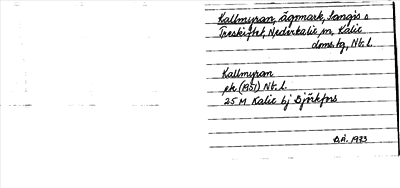 Kallmyran, ägomark, Sangis o
Treskiftet, Nederkalix sn, Kalix
dms. tg, Nb. l.
Kallmyran
ek (1951) Nb. l.
25 M Kalix bj Björkfors
B.Å. 1973